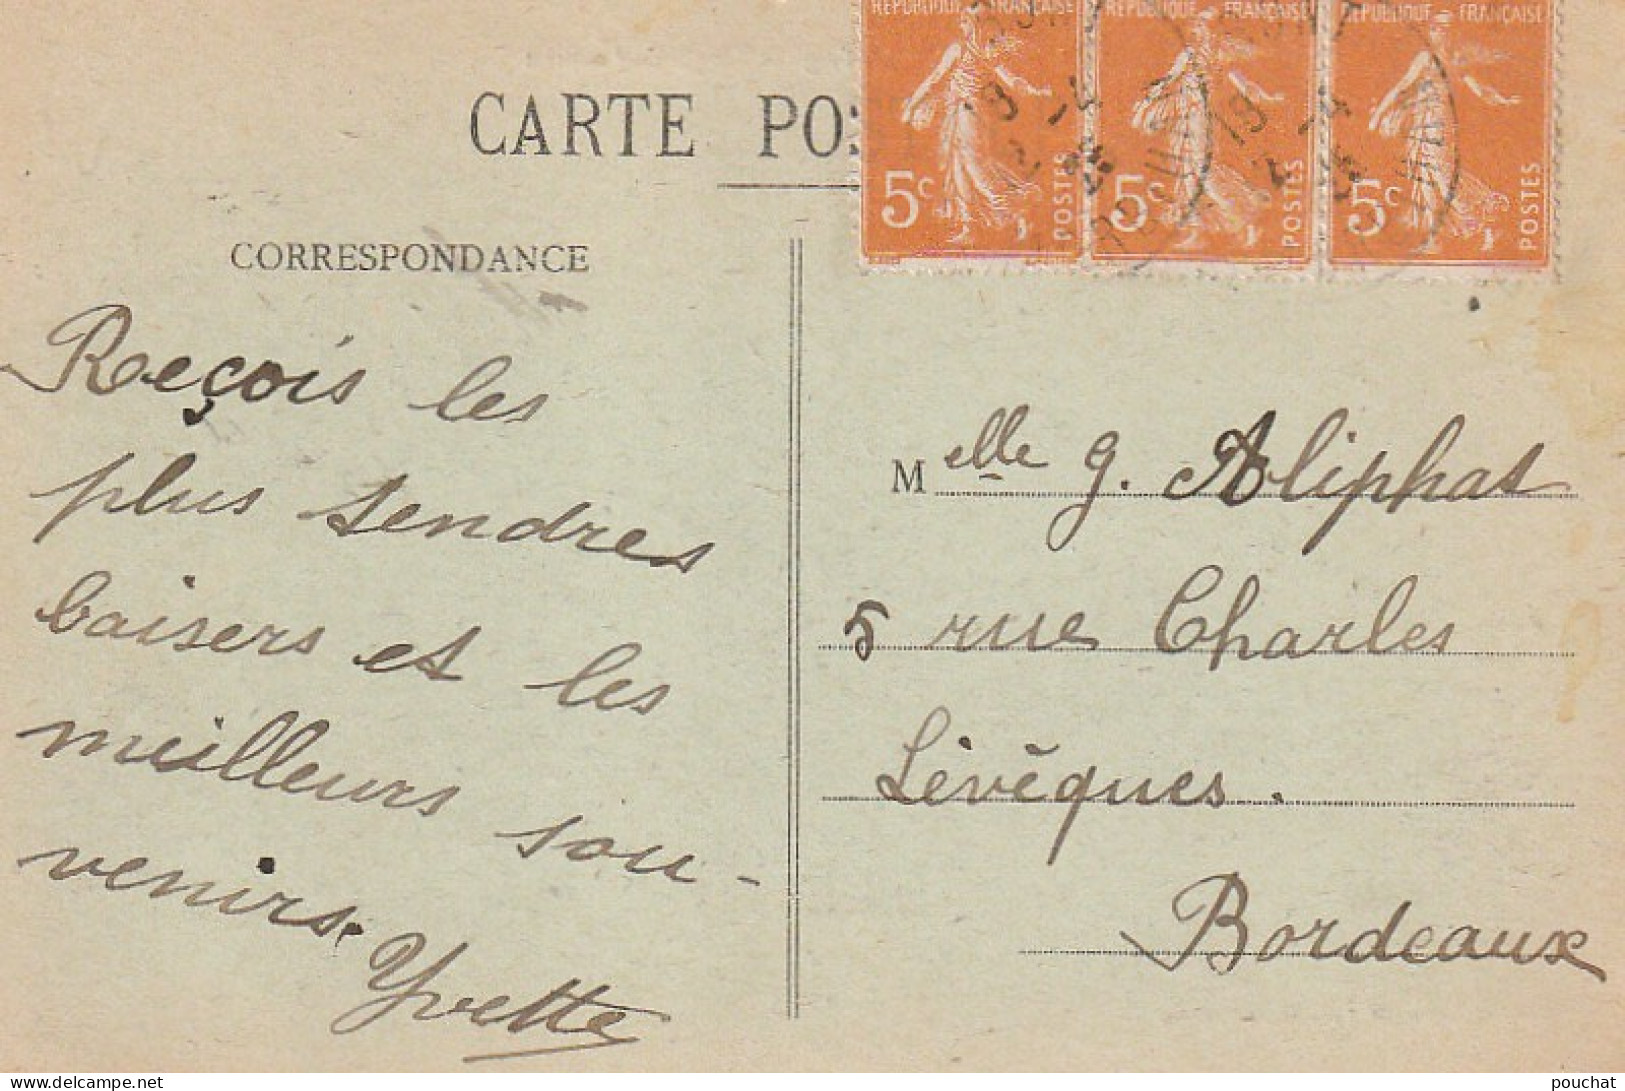 RÉPUBLIQUE FRANÇAISE RÉPUBLIQUE FRANÇAISE RÉPUBLIQUE FRANÇAISE
5c POSTES 5c POSTES 5c POSTES
CARTE POS
CORRESPONDANCE
Reçois les
plus tendres
baisers et les
meilleurs sou-
venirs.
Yvette
Melle G. Aliphat
5 rue Charles
Lévêques.
Bordeaux
delcampe.net
pouchat